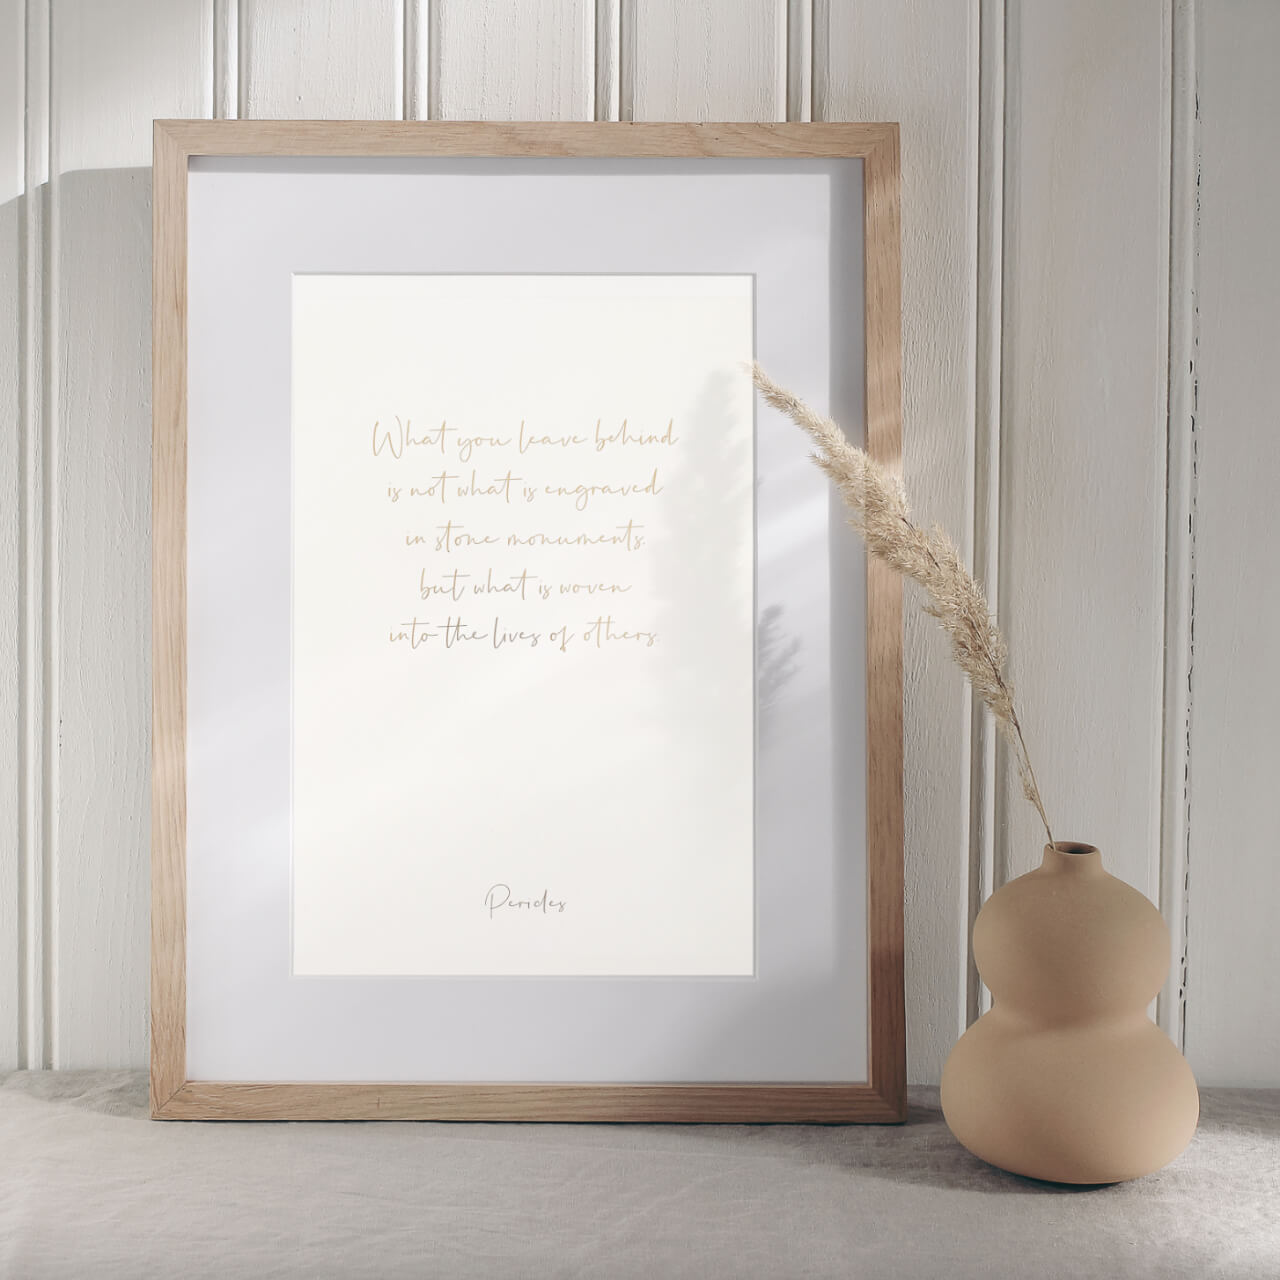 What you leave behind
is not what is engraved
in stone monuments,
but what is woven
into the lives of others.
Pericles